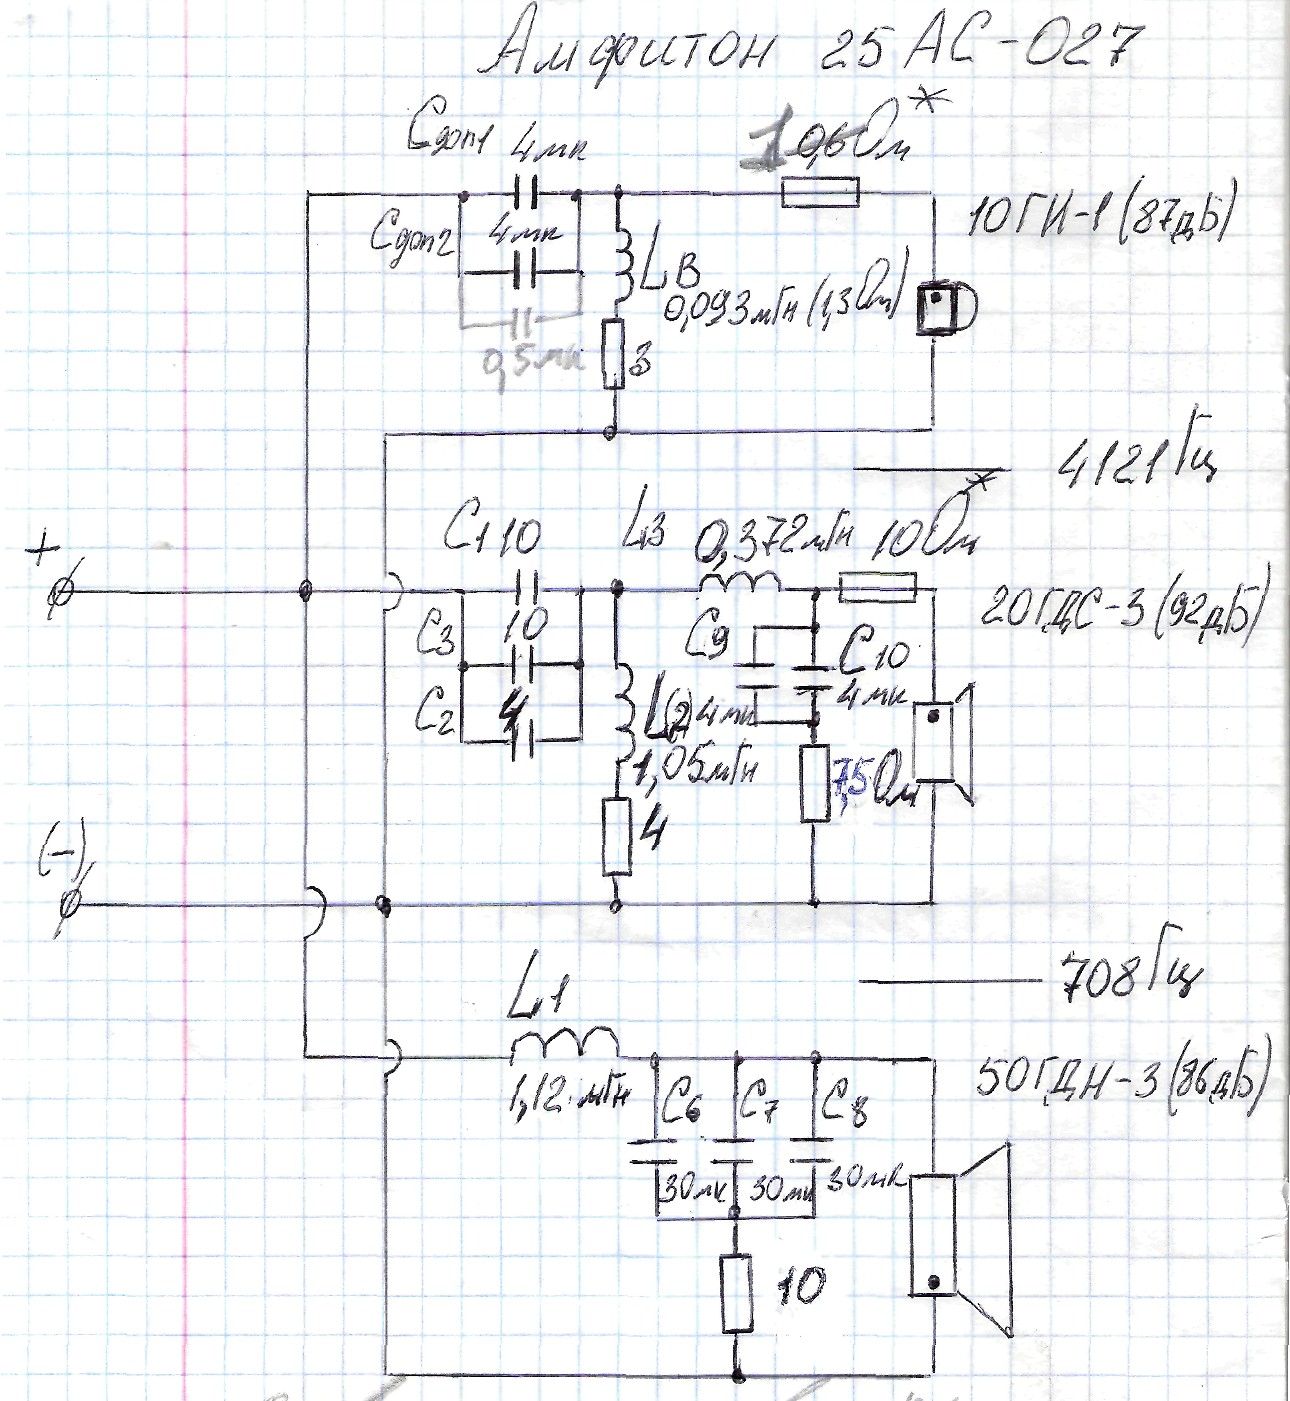 Амфитон 25АС-027
Сдоп1 4мк
1 0,6Ом*
10ГИ-1 (87дБ)
Сдоп2 4мк
LВ
0,093мГн (1,3Ом)
0,5мк
3
4121Гц
+
С1 10
L3
0,372мГн
10Ом*
20ГДС-3 (92дБ)
С3 10
С9
С10
4мк
4мк
С2 4
L(2)
1,05мГн
7,5Ом
4
(-)
708Гц
L1
1,12мГн
50ГДН-3 (86дБ)
С6 С7 С8
30мк 30мк 30мк
10